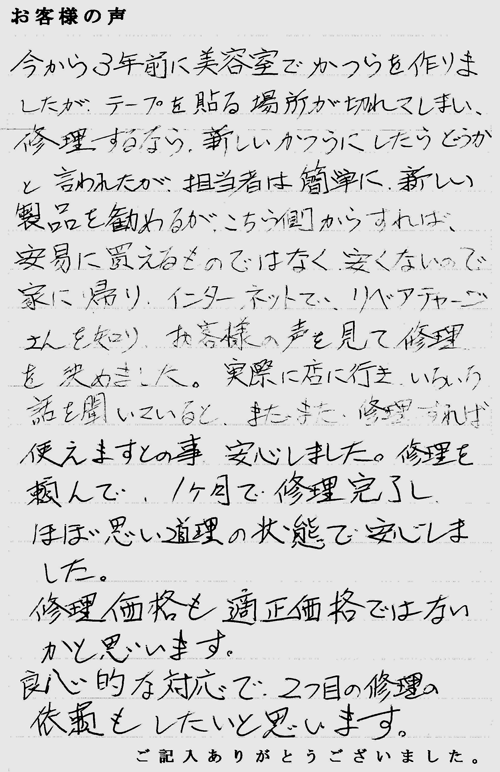 お客様の声
今から3年前に美容室でかつらを作りま
したが、テープを貼る場所が切れてしまい、
修理するなら、新しいかつらにしたらどうか
と言われたが、担当者は簡単に、新しい
製品を勧めるが、こちら側からすれば、
安易に買えるものではなく、安くないので
家に帰り、インターネットで、リペアチャージ
さんを知り、お客様の声を見て修理
を決めました。実際に店に行き、いろいろ
話を聞いていると、まだまだ、修理すれば
使えますとの事、安心しました。修理を
頼んで、1ケ月で修理完了し、
ほぼ思い道理の状態で安心しま
した。
修理価格も適正価格ではない
かと思います。
良心的な対応で、2つ目の修理の
依頼もしたいと思います。
ご記入ありがとうございました。